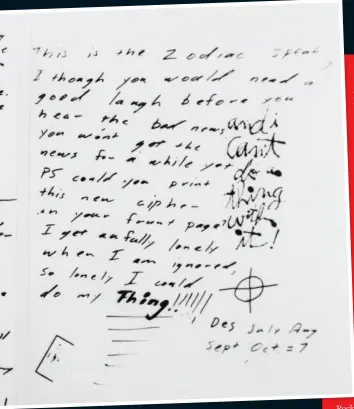 This is the Zodiac speak
I though you woald need a
good laugh before you
hear the bad news
you won't get the
news for a while yet
PS could you print
this new cipher
on your front page?
I get aufully lonely
when I am ignored,
so lonely I could
do my Thing!!!!!!
and i
Can't
do a
thing
with
it!
Des July Aug
Sept Oct = 7